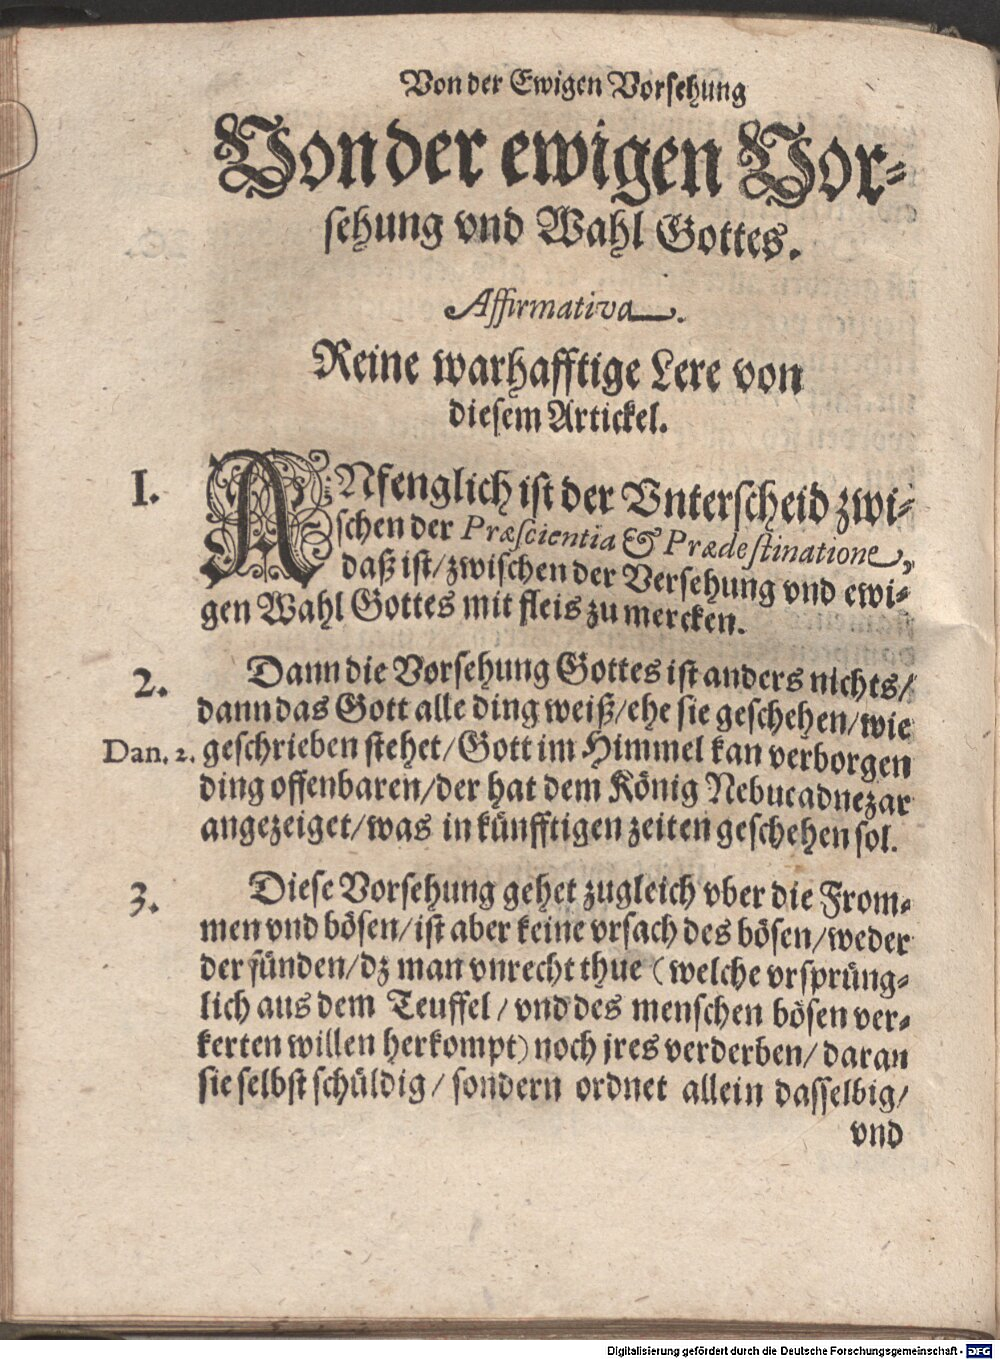 Von der Ewigen Vorsehung
Von der ewigen Vor-
sehung vnd Wahl Gottes.
Affirmativa.
Reine warhafftige Lere von
diesem Artickel.
1. ANfenglich ist der Vnterscheid zwi-
schen der Præscientia & Prædestinatione,
daß ist/ zwischen der Versehung vnd ewi-
gen Wahl Gottes mit fleis zu mercken.
2. Dann die Vorsehung Gottes ist anders nichts/
dann das Gott alle ding weiß/ ehe sie geschehen/ wie
Dan. 2. geschrieben stehet/ Gott im Himmel kan verborgen
ding offenbaren/ der hat dem König Nebucadnezar
angezeiget/ was in künfftigen zeiten geschehen sol.
3. Diese Vorsehung gehet zugleich vber die From-
men vnd bösen/ ist aber keine vrsach des bösen/ weder
der sünden/ dz man vnrecht thue (welche vrsprüng-
lich aus dem Teuffel/ vnd des menschen bösen ver-
kerten willen herkompt) noch jres verderben/ daran
sie selbst schüldig/ sondern ordnet allein dasselbig/
vnd
Digitalisierung gefördert durch die Deutsche Forschungsgemeinschaft - DFG